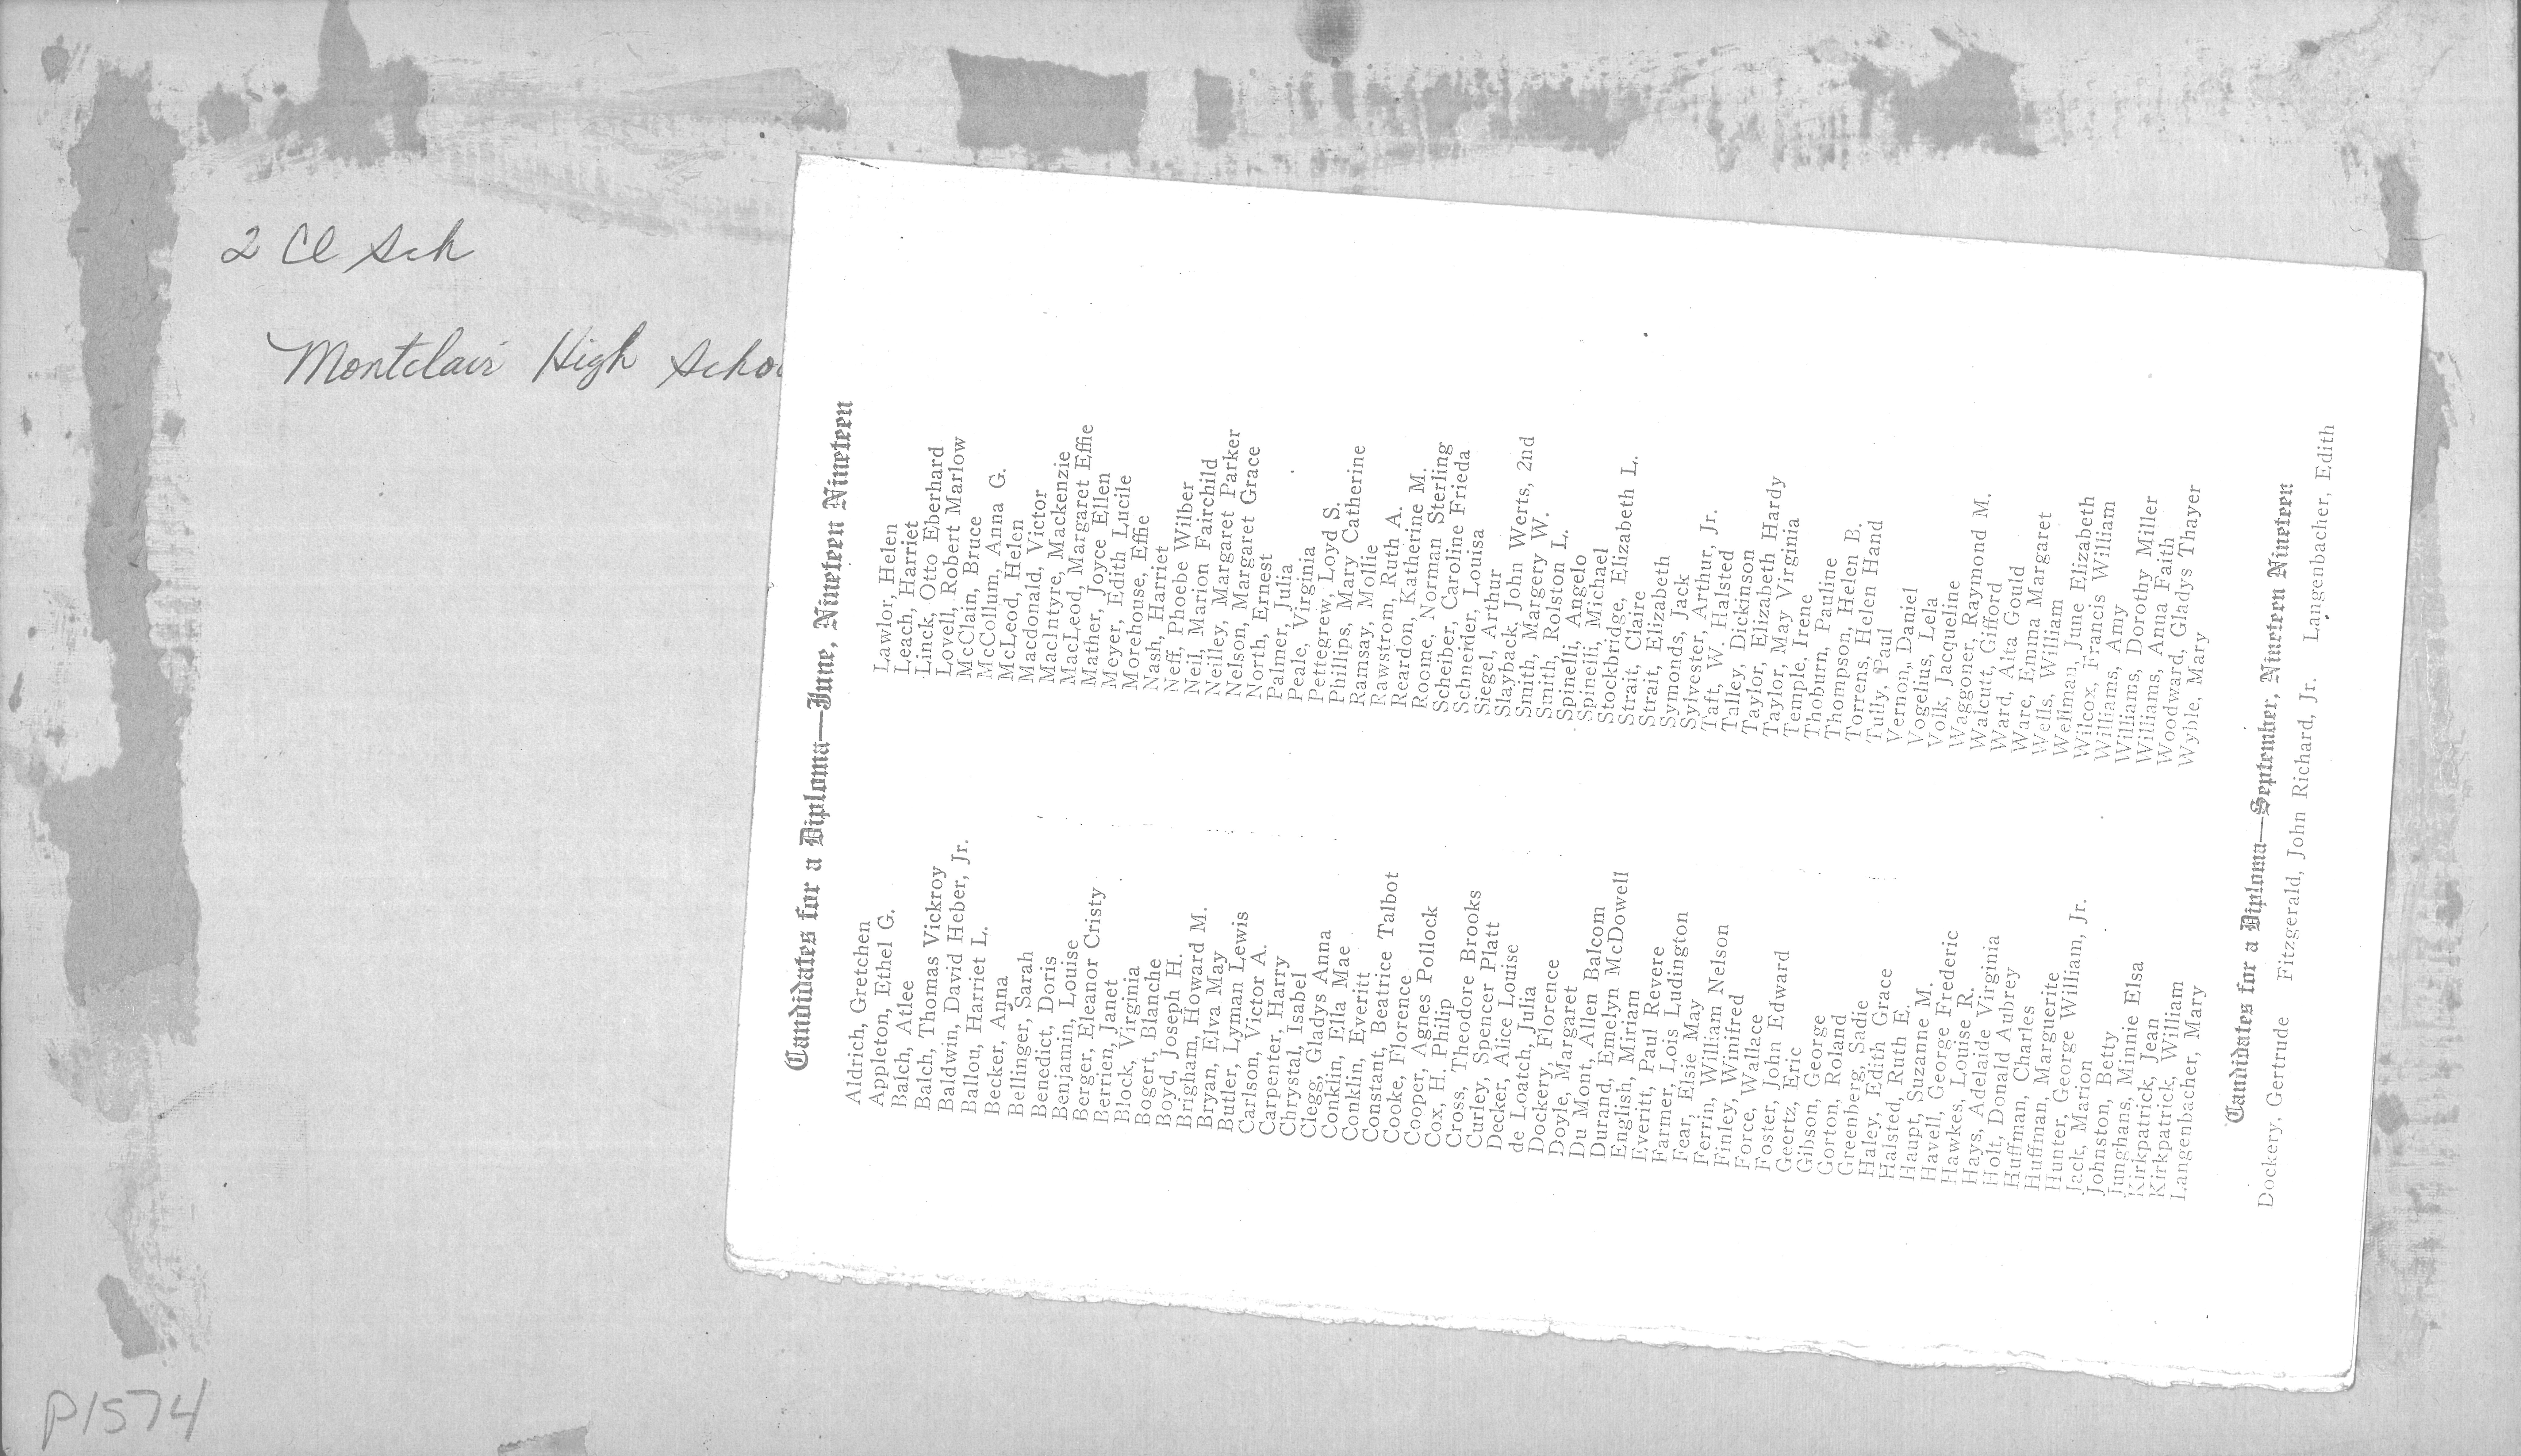 2 Cl Sch
Montclair High Schoo
P1574
Candidates for a Diploma—June, Nineteen Nineteen
Aldrich, Gretchen
Appleton, Ethel G.
Balch, Atlee
Balch, Thomas Vickroy
Baldwin, David Heber, Jr.
Ballou, Harriet L.
Becker, Anna
Bellinger, Sarah
Benedict, Doris
Benjamin, Louise
Berger, Eleanor Cristy
Berrien, Janet
Block, Virginia
Bogert, Blanche
Boyd, Joseph H.
Brigham, Howard M.
Bryan, Elva May
Butler, Lyman Lewis
Carlson, Victor A.
Carpenter, Harry
Chrystal, Isabel
Clegg, Gladys Anna
Conklin, Ella Mae
Conklin, Everitt
Constant, Beatrice Talbot
Cooke, Florence
Cooper, Agnes Pollock
Cox, H. Philip
Cross, Theodore Brooks
Curley, Spencer Platt
Decker, Alice Louise
de Loatch, Julia
Dockery, Florence
Doyle, Margaret
Du Mont, Allen Balcom
Durand, Emelyn McDowell
English, Miriam
Everitt, Paul Revere
Farmer, Lois Ludington
Fear, Elsie May
Ferrin, William Nelson
Finley, Winifred
Force, Wallace
Foster, John Edward
Geertz, Eric
Gibson, George
Gorton, Roland
Greenberg, Sadie
Haley, Edith Grace
Halsted, Ruth E.
Haupt, Suzanne M.
Havell, George Frederic
Hawkes, Louise R.
Hays, Adelaide Virginia
Holt, Donald Aubrey
Huffman, Charles
Huffman, Marguerite
Hunter, George William, Jr.
Jack, Marion
Johnston, Betty
Junghans, Minnie Elsa
Kirkpatrick, Jean
Kirkpatrick, William
Langenbacher, Mary
Lawlor, Helen
Leach, Harriet
Linck, Otto Eberhard
Lovell, Robert Marlow
McClain, Bruce
McCollum, Anna G.
McLeod, Helen
Macdonald, Victor
MacIntyre, Mackenzie
MacLeod, Margaret Effie
Mather, Joyce Ellen
Meyer, Edith Lucile
Morehouse, Effie
Nash, Harriet
Neff, Phoebe Wilber
Neil, Marion Fairchild
Neilley, Margaret Parker
Nelson, Margaret Grace
North, Ernest
Palmer, Julia
Peale, Virginia
Pettegrew, Loyd S.
Phillips, Mary Catherine
Ramsay, Mollie
Rawstrom, Ruth A.
Reardon, Katherine M.
Roome, Norman Sterling
Scheiber, Caroline Frieda
Schneider, Louisa
Siegel, Arthur
Slayback, John Werts, 2nd
Smith, Margery W.
Smith, Rolston L.
Spinelli, Angelo
Spinelli, Michael
Stockbridge, Elizabeth L.
Strait, Claire
Strait, Elizabeth
Symonds, Jack
Sylvester, Arthur, Jr.
Taft, W. Halsted
Talley, Dickinson
Taylor, Elizabeth Hardy
Taylor, May Virginia
Temple, Irene
Thoburn, Pauline
Thompson, Helen B.
Torrens, Helen Hand
Tully, Paul
Vernon, Daniel
Vogelius, Lela
Volk, Jacqueline
Waggoner, Raymond M.
Walcutt, Gifford
Ward, Aita Gould
Ware, Emma Margaret
Wells, William
Wellman, June Elizabeth
Wilcox, Francis William
Williams, Amy
Williams, Dorothy Miller
Williams, Anna Faith
Woodward, Gladys Thayer
Wyble, Mary
Candidates for a Diploma—September, Nineteen Nineteen
Dockery, Gertrude Fitzgerald, John Richard, Jr. Langenbacher, Edith